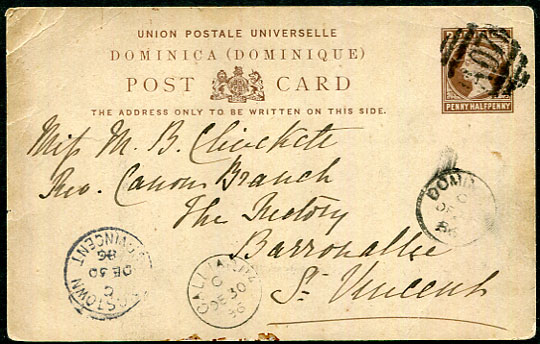 UNION POSTALE UNIVERSELLE
DOMINICA (DOMINIQUE)
POST CARD
THE ADDRESS ONLY TO BE WRITTEN ON THIS SIDE.
PENNY HALFPENNY
Miss M. B. Checkett
Rev. Canon Branch
The Rectory
Barroualie
St. Vincent
DOMI
C
DE
86
KINGSTOWN
C
DE 30
86
ST VINCENT
CALLIAQUA
C
DE 30
86